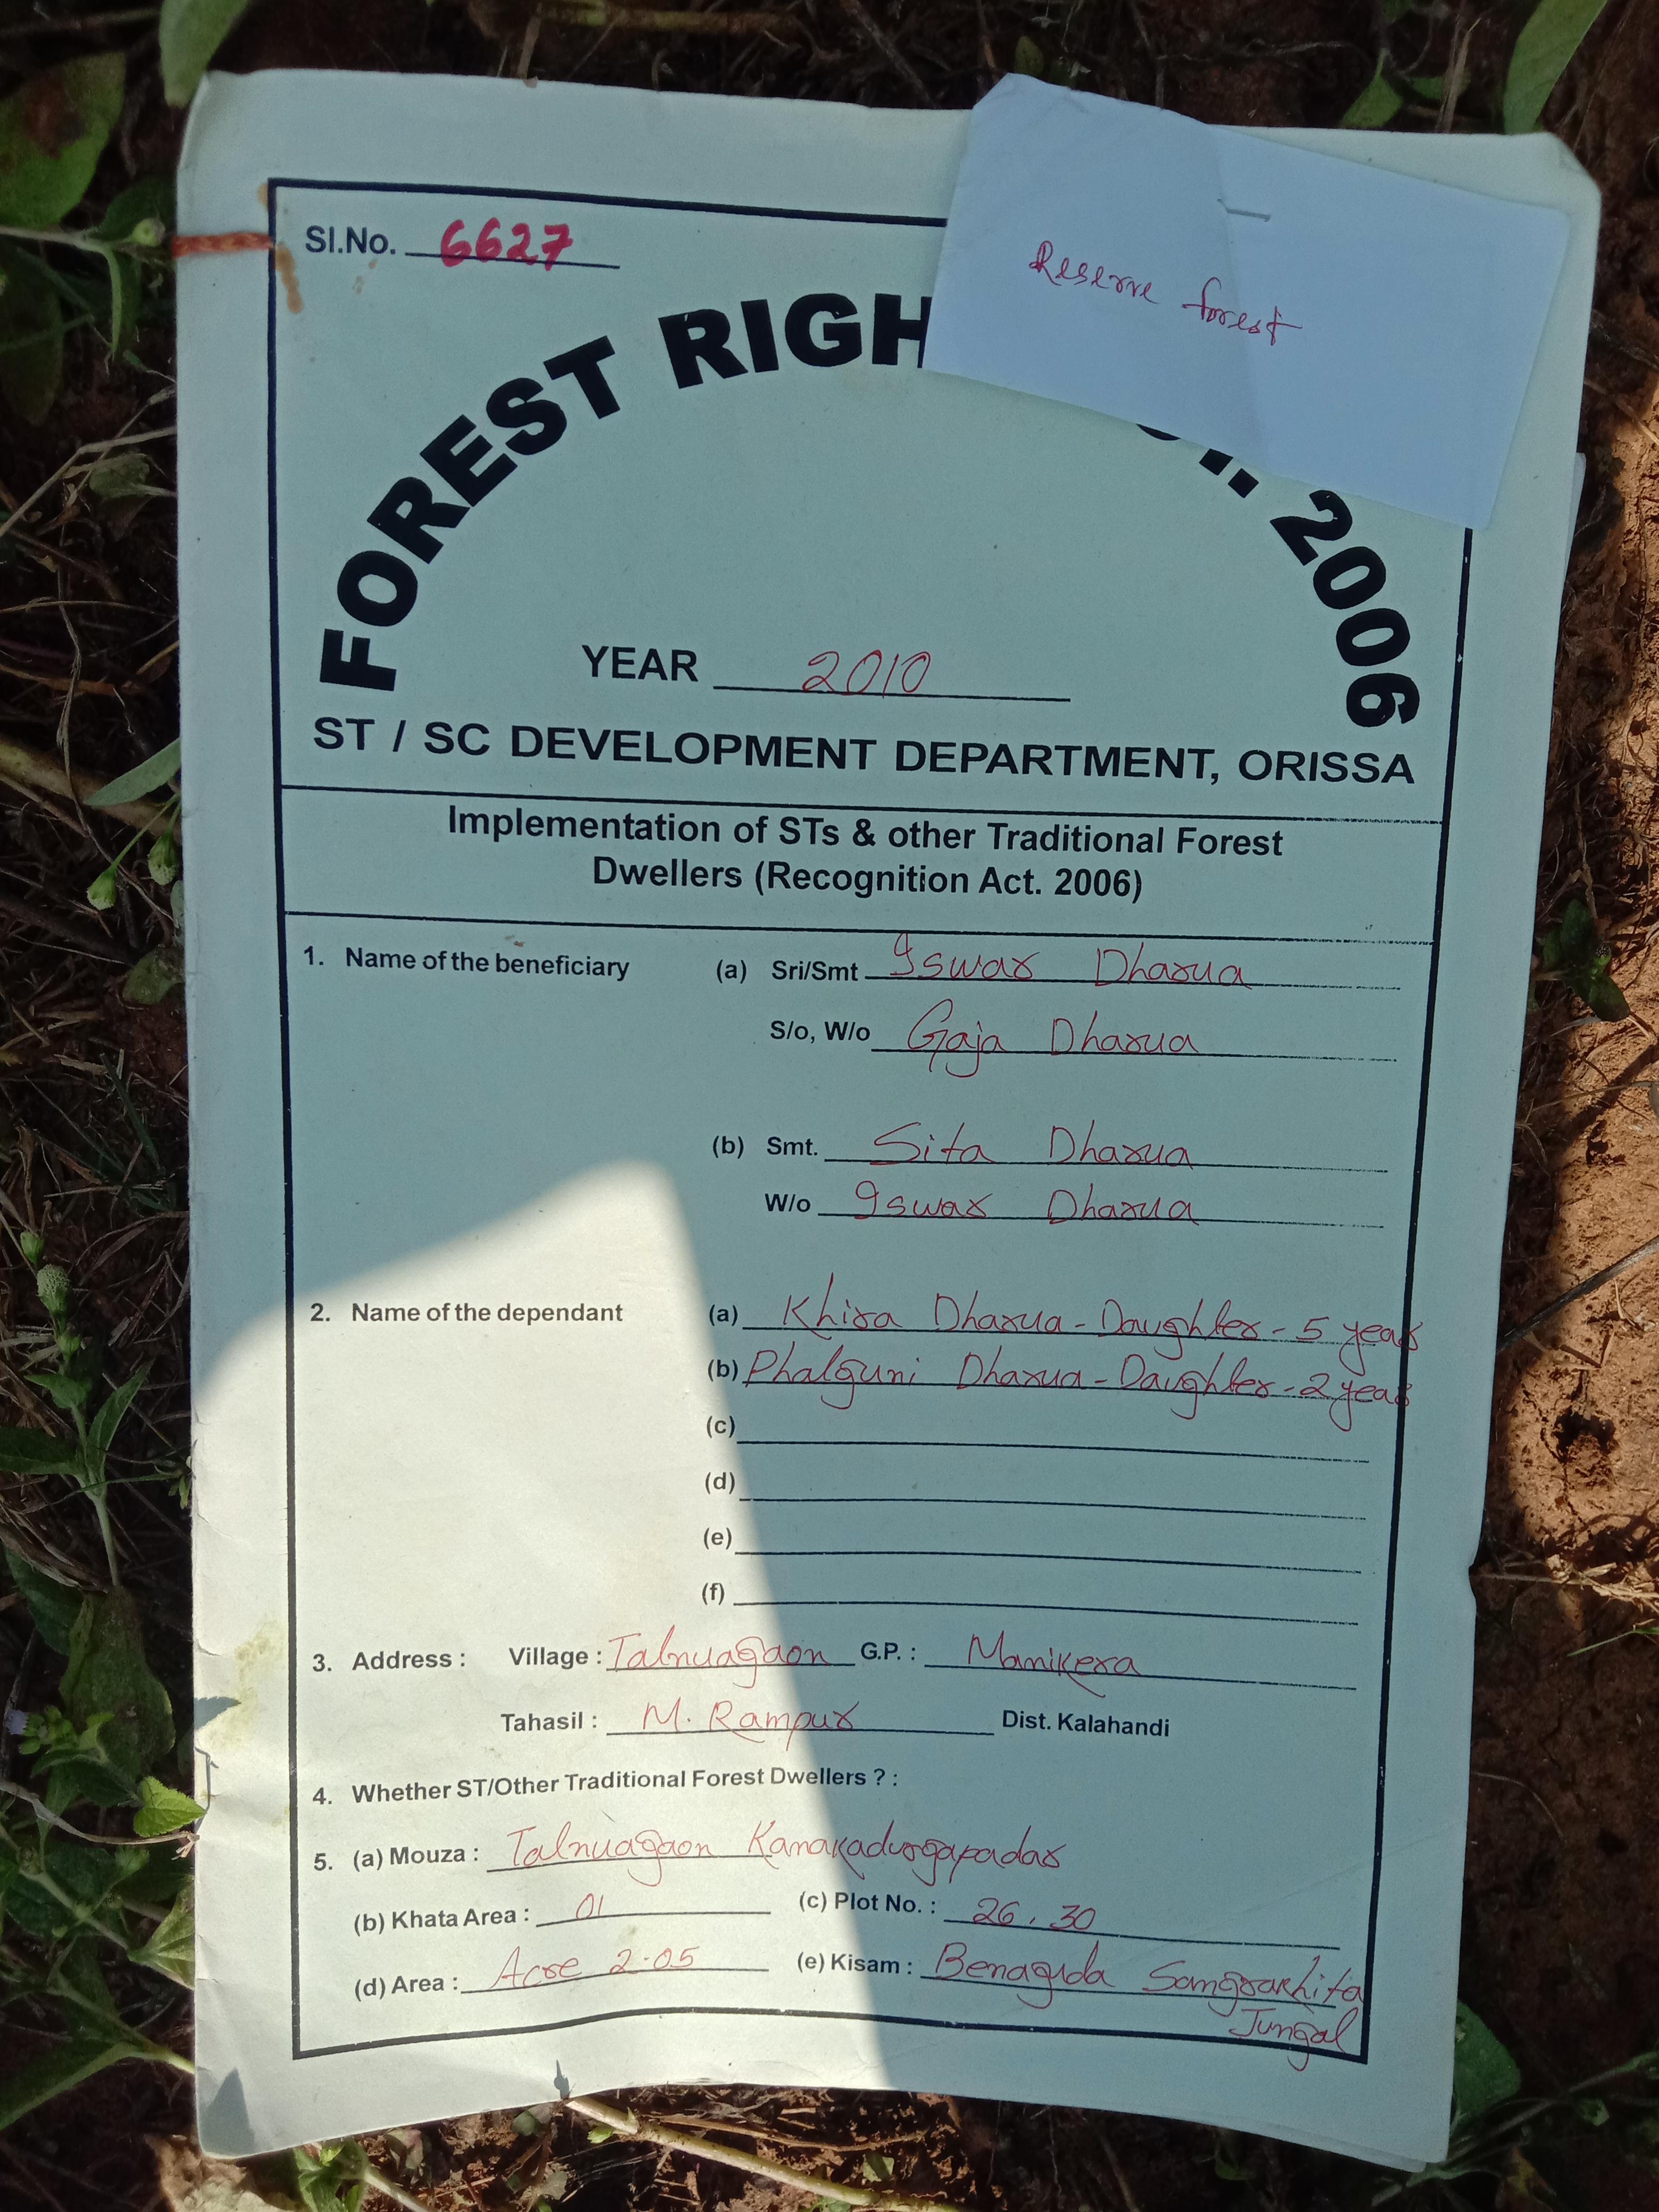 Sl.No. 6627
Reserve forest
FOREST RIGH
2006
YEAR 2010
ST / SC DEVELOPMENT DEPARTMENT, ORISSA
Implementation of STs & other Traditional Forest
Dwellers (Recognition Act. 2006)
1. Name of the beneficiary (a) Sri/Smt Iswar Dharua
S/o, W/o Gaja Dharua
(b) Smt. Sita Dharua
W/o Iswar Dharua
2. Name of the dependant (a) Khira Dharua - Daughter - 5 years
(b) Phalguni Dharua - Daughter - 2 years
(c)
(d)
(e)
(f)
3. Address : Village : Talnuagaon G.P. : Manikera
Tahasil : M. Rampur Dist. Kalahandi
4. Whether ST/Other Traditional Forest Dwellers ? :
5. (a) Mouza : Talnuagaon Kanakadurgapadar
(b) Khata Area : 01 (c) Plot No. : 26, 30
(d) Area : Acre 2.05 (e) Kisam : Benaguda Samgrakhita
Jungal